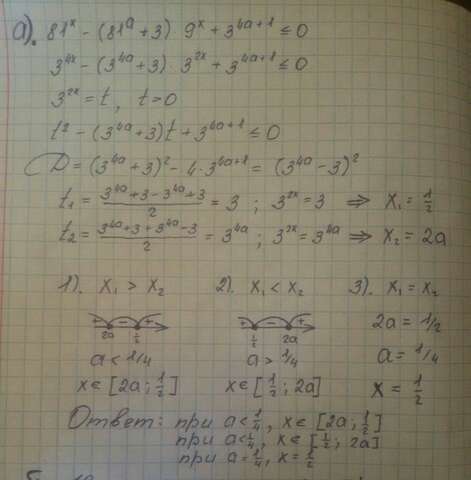 а). 81^x - (81^a + 3) 9^x + 3^{4a+1} ≤ 0
3^{4x} - (3^{4a} + 3) · 3^{2x} + 3^{4a+1} ≤ 0
3^{2x} = t, t = 0
t² - (3^{4a} + 3)t + 3^{4a+1} ≤ 0
D = (3^{4a} + 3)² - 4 · 3^{4a+1} = (3^{4a} - 3)²
t₁ = (3^{4a} + 3 - 3^{4a} + 3)/2 = 3 ; 3^{2x} = 3 ⇒ x₁ = 1/2
t₂ = (3^{4a} + 3 + 3^{4a} - 3)/2 = 3^{4a} ; 3^{2x} = 3^{4a} ⇒ x₂ = 2a
1). x₁ > x₂ 2). x₁ < x₂ 3). x₁ = x₂
+ - + + - + 2a = 1/2
2a 1/2 1/2 2a
a < 1/4 a > 1/4 a = 1/4
x ∈ [2a ; 1/2] x ∈ [1/2 ; 2a] x = 1/2
Ответ: при a < 1/4, x ∈ [2a ; 1/2]
при a < 1/4, x ∈ [1/2 ; 2a]
при a = 1/4, x = 1/2